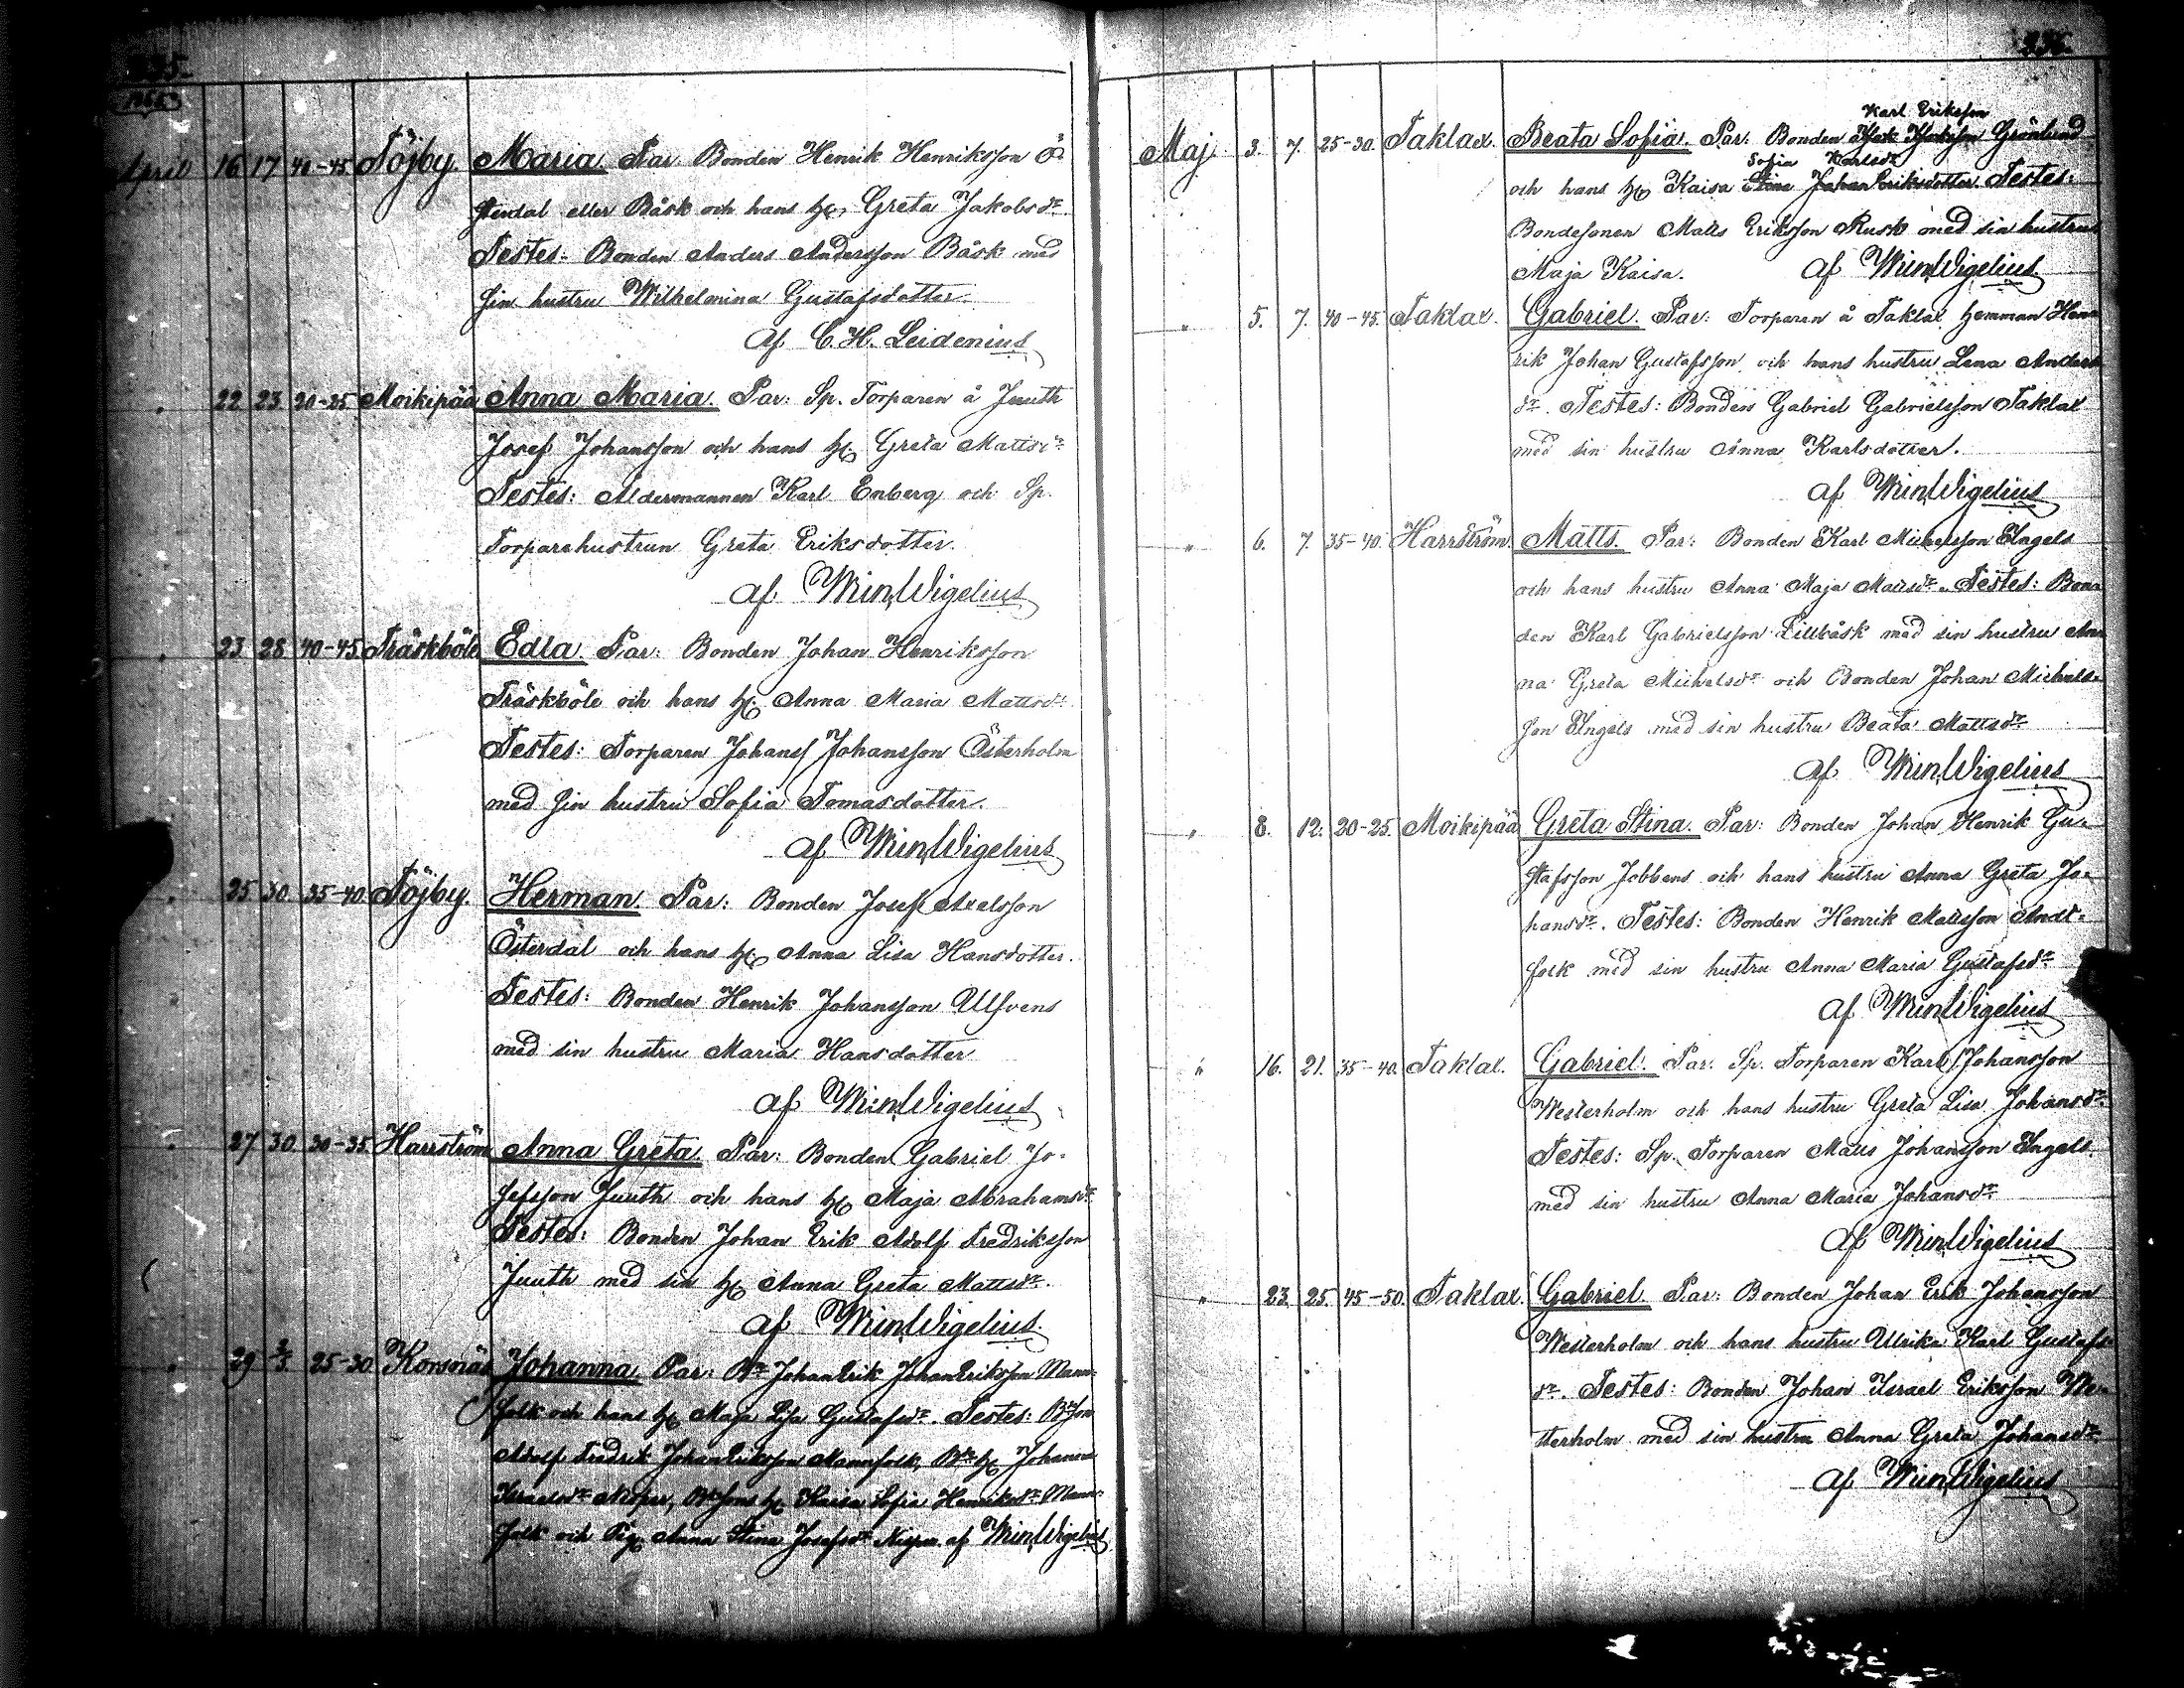 April 16 17 40-45 Töjby. Maria. Par. Bonden Henrik Henriksson Ö-
stendal eller Båsk och hans h. Greta Jakobsdr
Testes: Bonden Anders Andersson Båsk med
sin hustru Wilhelmina Gustafsdotter.
af C. H. Leidenius
" 22 23 20-25 Moikipää Anna Maria. Par: Sp. Torparen å Juuth
Josef Johansson och hans h. Greta Mattsdr
Testes: Åldermannen Karl Enberg och Sp.
Torparehustrun Greta Eriksdotter.
af Wigelius
" 23 28 40-45 Träskböle Edla. Par: Bonden Johan Henriksson
Träskböle och hans h. Anna Maria Mattsdr
Testes: Torparen Johans Johansson Österholm
med sin hustru Sofia Tomasdotter.
af Wigelius
" 25 30 35-40 Töjby. Herman. Par: Bonden Josef Axelsson
Österdal och hans h. Anna Lisa Hansdotter.
Testes: Bonden Henrik Johansson Ulfvens
med sin hustru Maria Hansdotter
af Wigelius
" 27 30 30-35 Harrström Anna Greta. Par: Bonden Gabriel Jo-
sefsson Juuth och hans h. Maja Abrahamsdr
Testes: Bonden Johan Erik Adolf Fredriksson
Juuth med sin h. Anna Greta Mattsdr.
af Wigelius.
" 29 2/5 25-30 Korsnäs Johanna. Par: Bn Johan Erik JohanEriksson Mann-
folk och hans h. Maja Lisa Gustafsdr. Testes: Bson
Adolf Fredrik JohanEriksson Mannfolk, Bn h. Johanna
Israelsdr, Bsons h. Kaisa Sofia Henriksdr Mann-
folk och Pig. Anna Stina Josefsdr af Wigelius
Karl Eriksson
Maj 3. 7. 25-30. Taklax. Beata Sofia. Par: Bonden Grönlund
Sofia Karlsdr
och hans h. Kaisa Stina JohanEriksdotter. Testes:
Bondesonen Matts Eriksson Rusk med sin hustru
Maja Kaisa. af Wigelius
" 5. 7. 40-45. Taklax. Gabriel. Par: Torparen å Taklax hemman Hen-
rik Johan Gustafsson och hans hustru Lena Anders
dr. Testes: Bonden Gabriel Gabrielsson Taklax
med sin hustru Anna Karlsdotter.
af Wigelius
" 6. 7. 35-40. Harrström. Matts. Par: Bonden Karl Michelsson Engels
och hans hustru Anna Maja Mattsdr. Testes: Bon-
den Karl Gabrielsson Lillbåsk med sin hustru An-
na Greta Michelsdr och Bonden Johan Michels-
son Engels med sin hustru Beata Mattsdr
af Wigelius
" 8. 12. 20-25. Moikipää Greta Stina. Par: Bonden Johan Henrik Gu-
stafsson Jobbens och hans hustru Anna Greta Jo-
hansdr. Testes: Bonden Henrik Mattsson Andt-
folk med sin hustru Anna Maria Gustafsdr
af Wigelius
" 16. 21. 35-40. Taklax. Gabriel. Par: Sp. Torparen Karl Johansson
Westerholm och hans hustru Greta Lisa Johansdr.
Testes: Sp. Torparen Matts Johansson Engels
med sin hustru Anna Maria Johansdr
af Wigelius
" 23. 25. 45-50. Taklax. Gabriel. Par: Bonden Johan Erik Johansson
Westerholm och hans hustru Ulrika Karl Gustafs
dr. Testes: Bonden Johan Israel Eriksson We-
sterholm med sin hustru Anna Greta Johansdr.
af Wigelius